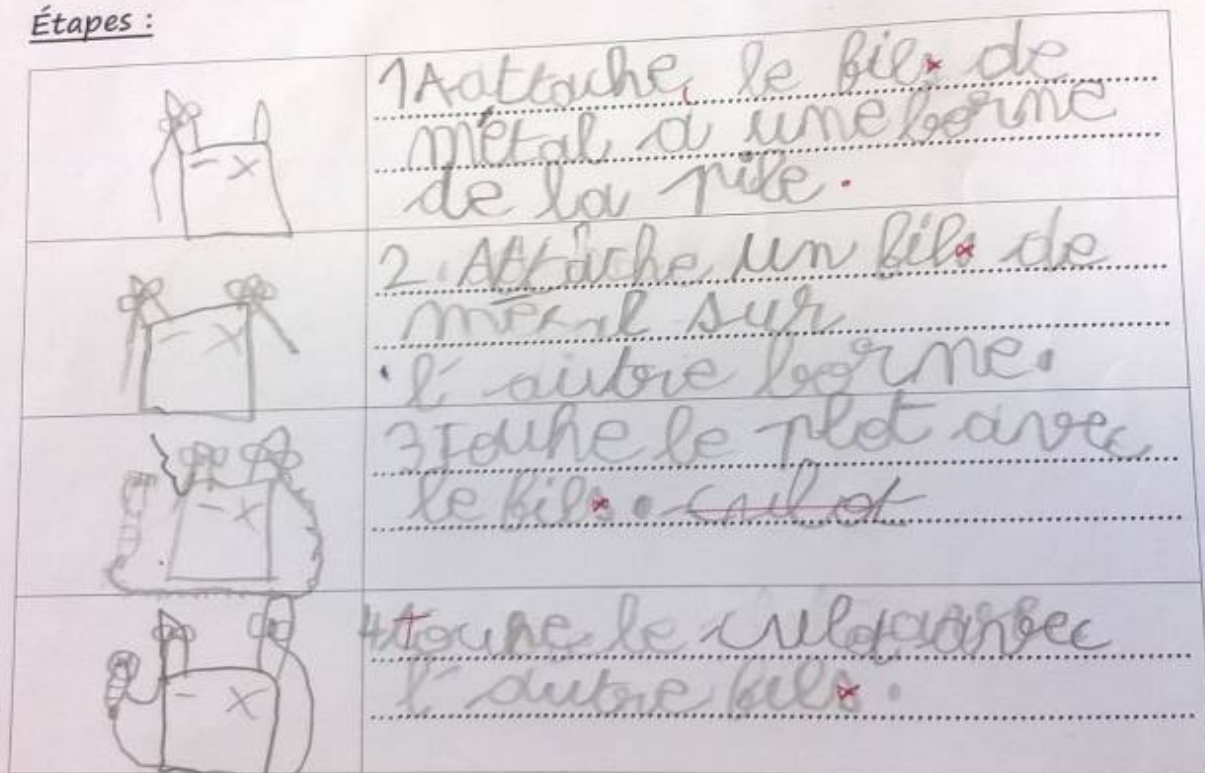 Étapes :
1 Aattache le fils de
métal a une borne
de la pile.
2. Attache un fils de
métal sur
l'autre borne.
3 Touhe le plot avec
le fils. culot
4 touhe le culot avec
l'autre fils.